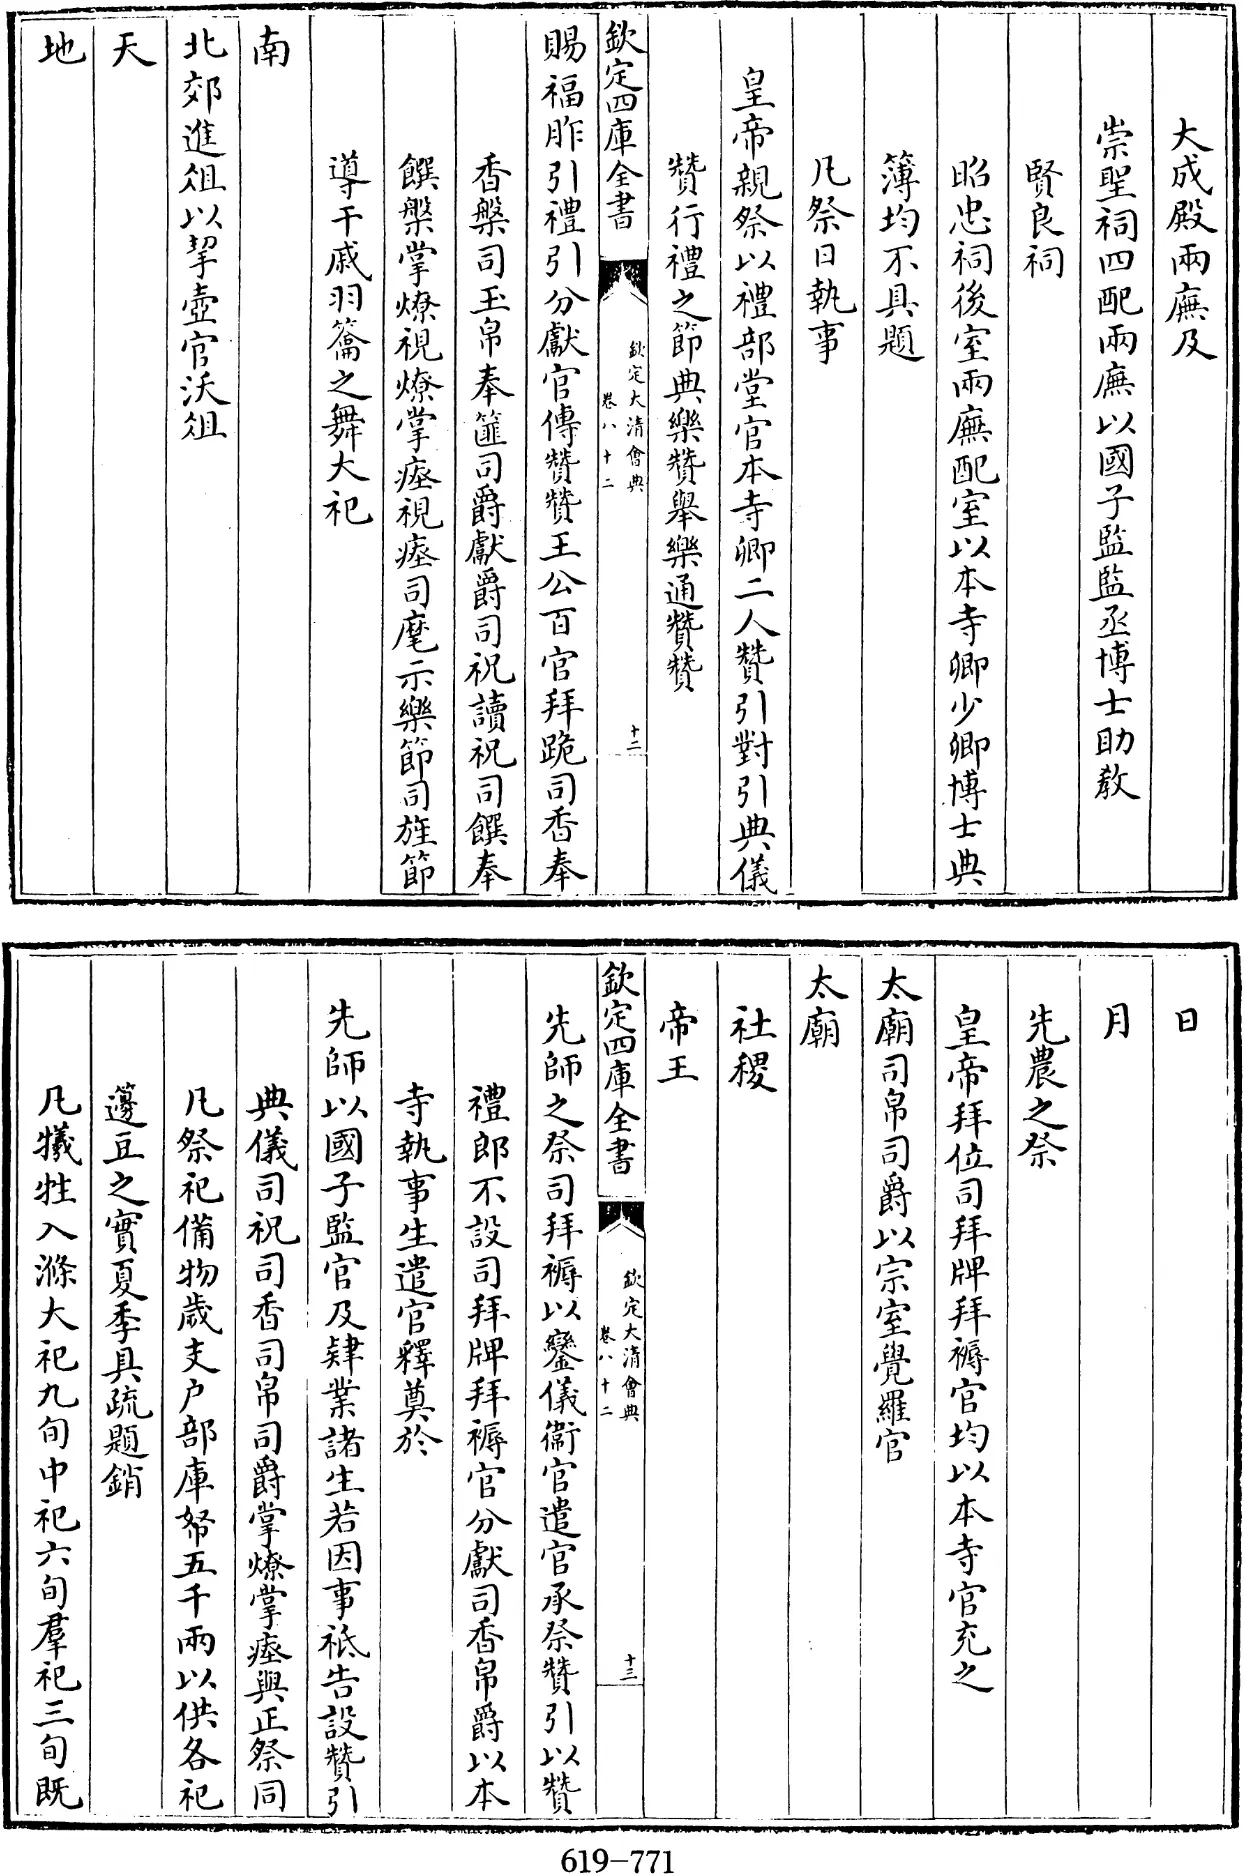 大成殿兩廡及
崇聖祠四配兩廡以國子監監丞博士助教
賢良祠
昭忠祠後室兩廡配室以本寺卿少卿博士典
簿均不具題
凡祭日執事
皇帝親祭以禮部堂官本寺卿二人贊引對引典儀
贊行禮之節典樂贊舉樂通贊贊
欽定四庫全書
欽定大清會典
卷八十二
十二
賜福胙引禮引分獻官傳贊贊王公百官拜跪司香奉
香槃司玉帛奉篚司爵獻爵司祝讀祝司饌奉
饌槃掌燎視燎掌瘞視瘞司麾示樂節司旌節
導干戚羽籥之舞大祀
南
北郊進俎以挈壺官沃俎
天
地
日
月
先農之祭
皇帝拜位司拜牌拜褥官均以本寺官充之
太廟司帛司爵以宗室覺羅官
太廟
社稷
帝王
欽定四庫全書
欽定大清會典
卷八十二
十三
先師之祭司拜褥以鑾儀衞官遣官承祭贊引以贊
禮郎不設司拜牌拜褥官分獻司香帛爵以本
寺執事生遣官釋奠於
先師以國子監官及肄業諸生若因事祗告設贊引
典儀司祝司香司帛司爵掌燎掌瘞與正祭同
凡祭祀備物歲支户部庫帑五千兩以供各祀
籩豆之實夏季具疏題銷
凡犧牲入滌大祀九旬中祀六旬羣祀三旬既
619-771